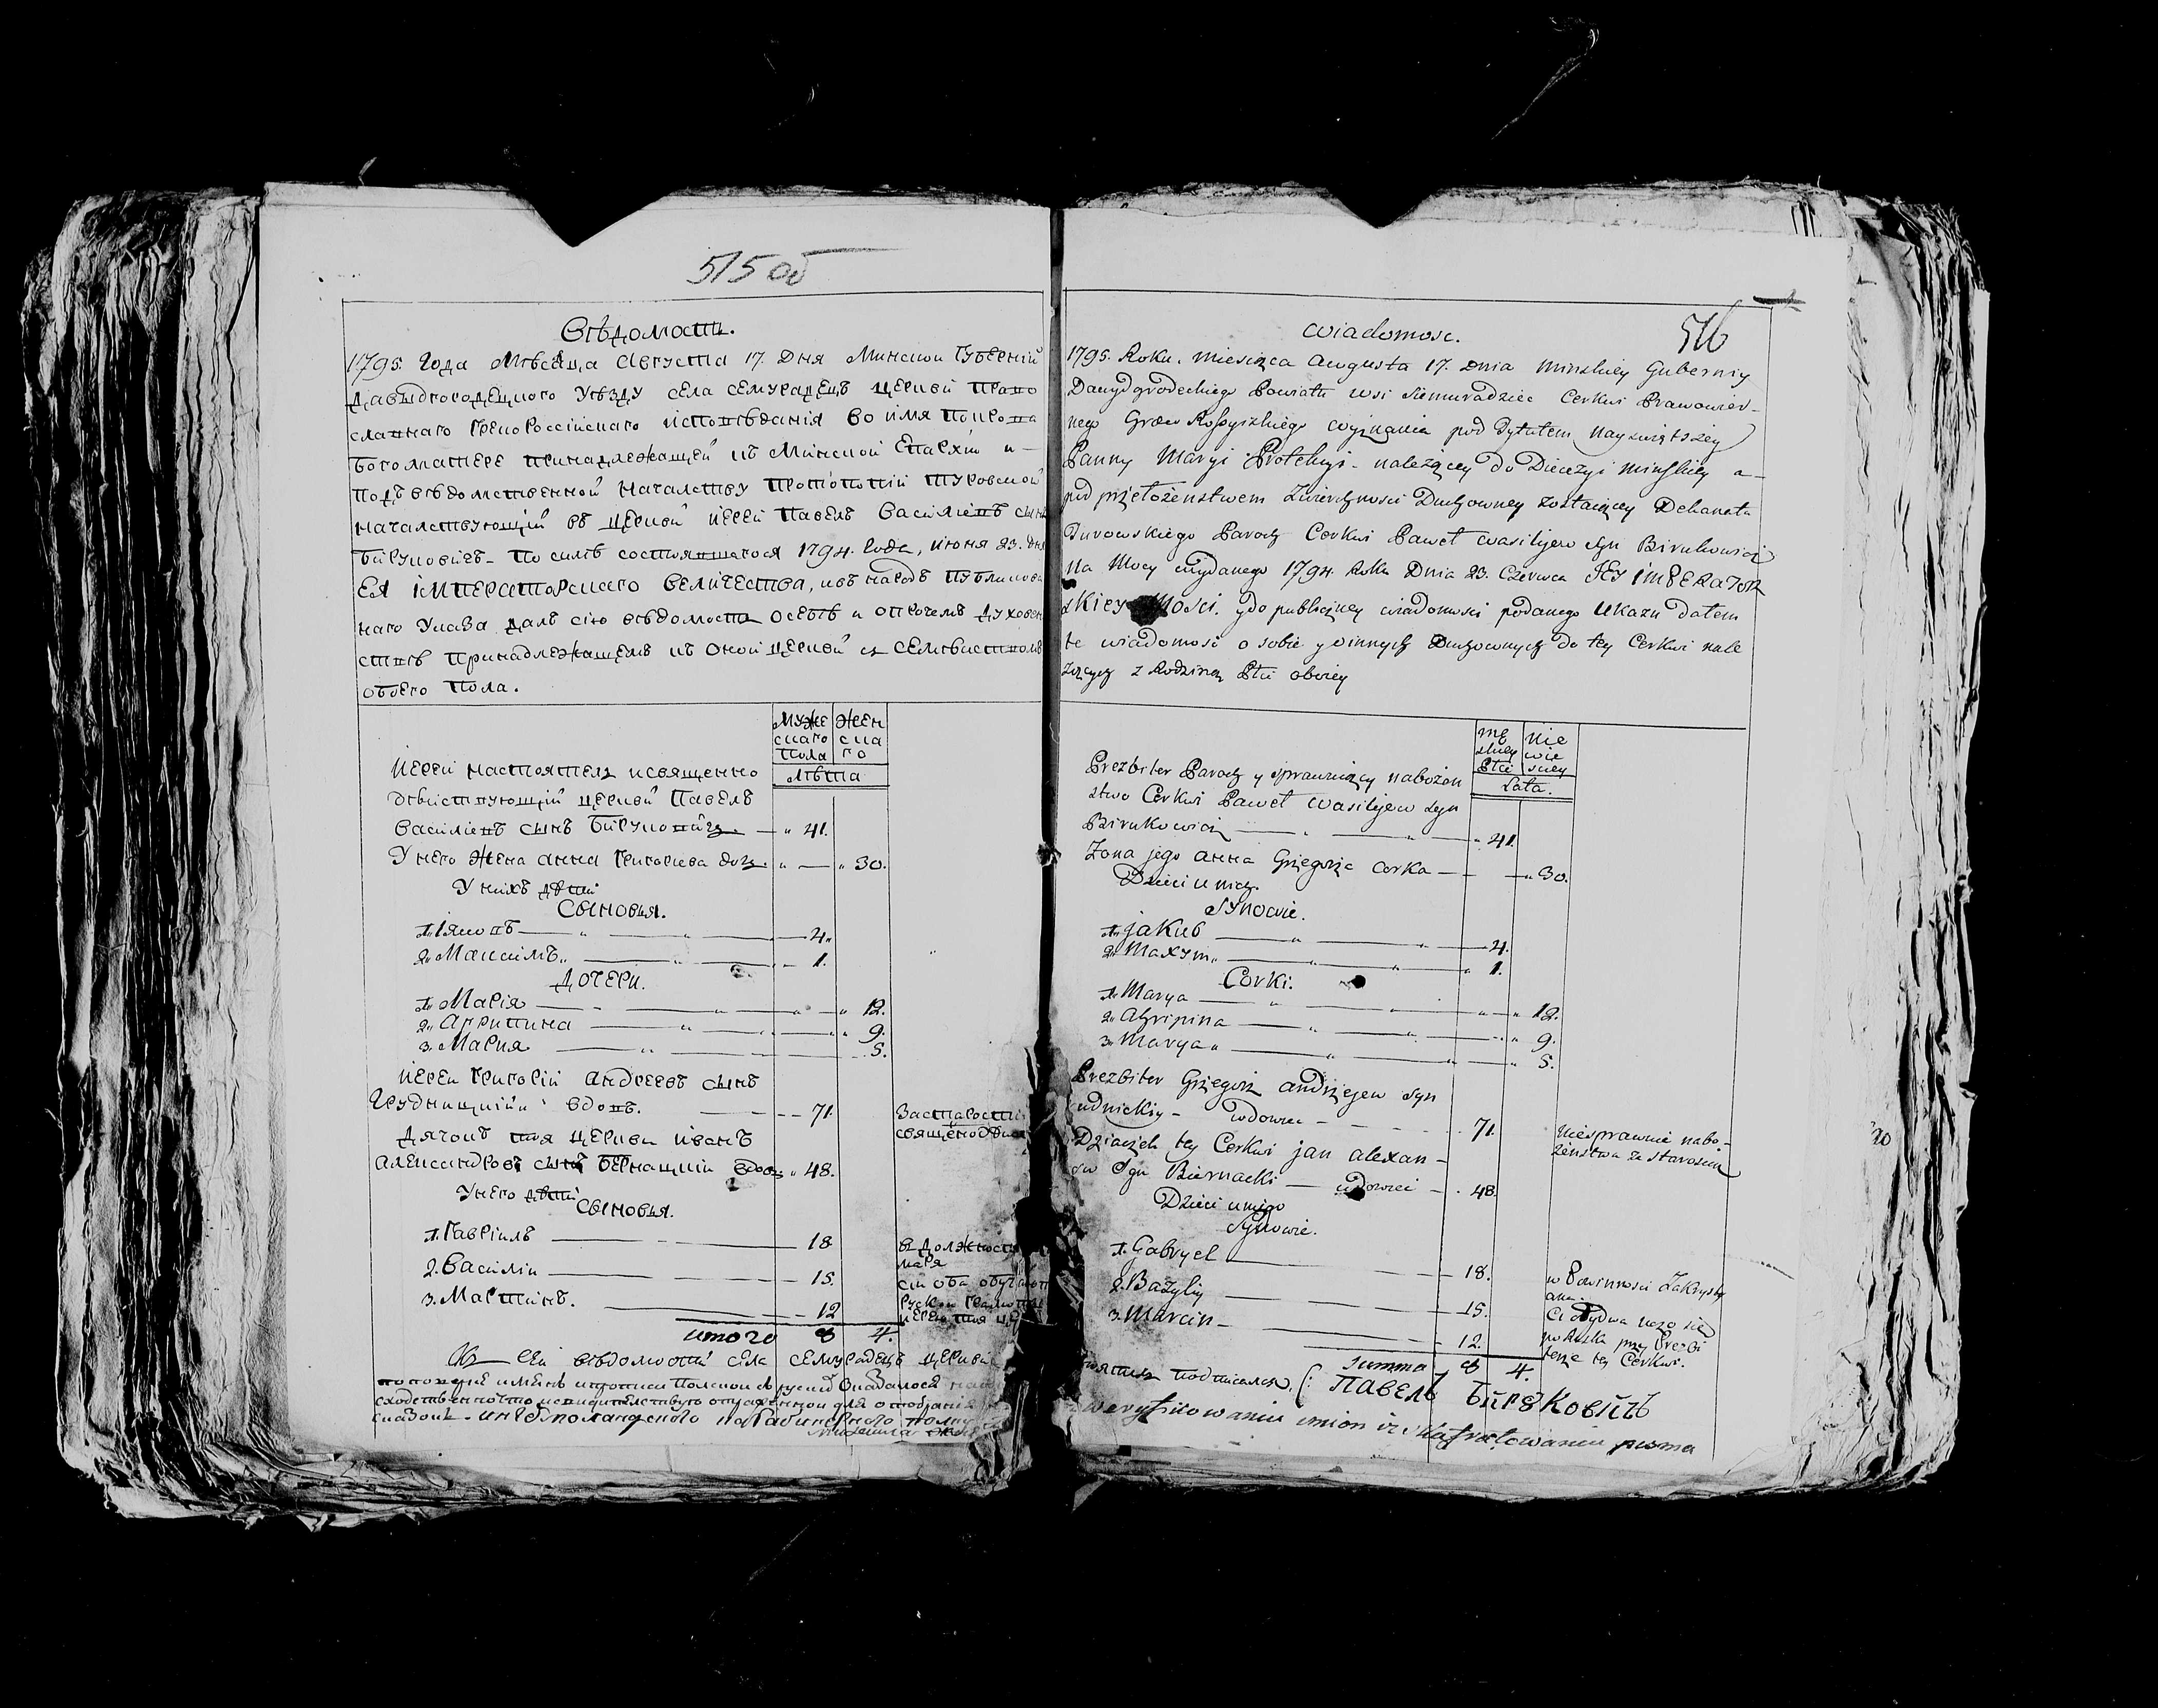 515 об
Вѣдомость.
1795. Года Мѣсяца Августа 17. Дня Минской Губерніи
Давыдгородецкого Уѣзду села Семурадецъ церкви право
славнаго Грекороссійскаго исповѣданія во имя Покрова
Богоматере принадлежащей къ Минской Епархіи и
подъ вѣдомственной началству протопопіи Туровской
началствующій въ церкви іерей Павелъ Василіевъ сынъ
Бируковичъ По силѣ состоявшагося 1794. Года, июня 23. дня
Ея імператорскаго величества, и въ народъ публикова
наго Указа далъ сію вѣдомость о себѣ и о прочемъ духовен
ствѣ принадлежащемъ къ оной церкви из семействомъ
обоего пола.
Муже Жен
скаго ска
пола го
лѣта
Иерей настоятель и священно
дѣйствующій церкви Павелъ
Василіевъ сынъ Бируковичъ 41.
У него жена Анна Григориева дочь 30.
У нихъ дѣти
Сыновья.
1. Іяковъ 4
2. Максимъ 1.
Дочери.
1. Марія 12.
2. Агрипина 9.
3. Мария 5.
Иерей Григорій Андреевъ сынъ
Грудницкий вдовъ. 71. За старости
Дячокъ тоя церкви Иванъ
Александровъ сынъ Бернацкій вдовъ 48.
У него дѣти
Сыновья.
1. Гавріилъ 18
2. Василій 15. сіи оба
3. Мартинъ. 12
итого 8 4.
сей вѣдомости села Семурадецъ церкви
516
Wiadomosc.
1795. Roku. miesiąca Awgusta 17. Dnia Minskiey Guberniy
Dawydgrodeckiego Powiatu wsi Siemuradziec Cerkwi Prawowier-
nego Greco Rossyiskiego wyznania pod Tytułem Nayswiętszey
Panny Maryi Protekcyi należący do Diecezyi Minskiey a
pod przełożenstwem Zwierzchnosci Duchowney zostaiący Dekanatu
Turowskiego Paroch Cerkwi Paweł Wasilijew Syn Birukowicz
na Mocy wydanego 1794. Roku Dnia 23. Czerwca JEY IMPERATOR
skiey Mości. y do publiczney wiadomosci podanego Ukazu datem
te wiadomosć o sobie y innych Duchownych do tey Cerkwi nale
zących z Rodziną Płci oboiey
mę Nie
skiey wie
Płci sciey
Lata.
Prezbiter Paroch y sprawuiący nabożen
stwo Cerkwi Paweł Wasilijew Syn
Birukowicz 41.
Zona jego Anna Grzegorza Corka 30.
Dzieci u nich.
Synowie.
1. Jakub 4.
2. Maxym 1.
Corki.
1. Marya 12.
2. Agripina 9.
3. Marya 5.
Prezbiter Grzegorz Andrzejew Syn
udnickiy wdowiec 71. Niesprawuie nabo-
żenstwa za staroscią
Dziaczek tey Cerkwi Jan Alexan-
Syn Biernacki wdowiec 48.
Dzieci u niego
Synowie.
1. Gabryel 18. w Powinnosci Zakrysty
ana.
2. Bazyliy 15. Ci obydwa uczo sie
3. Marcin 12. po Rusku przy Prezbi
terze tey Cerkwi.
Summa 8 4.
подписался (: Павелъ Бируковичъ